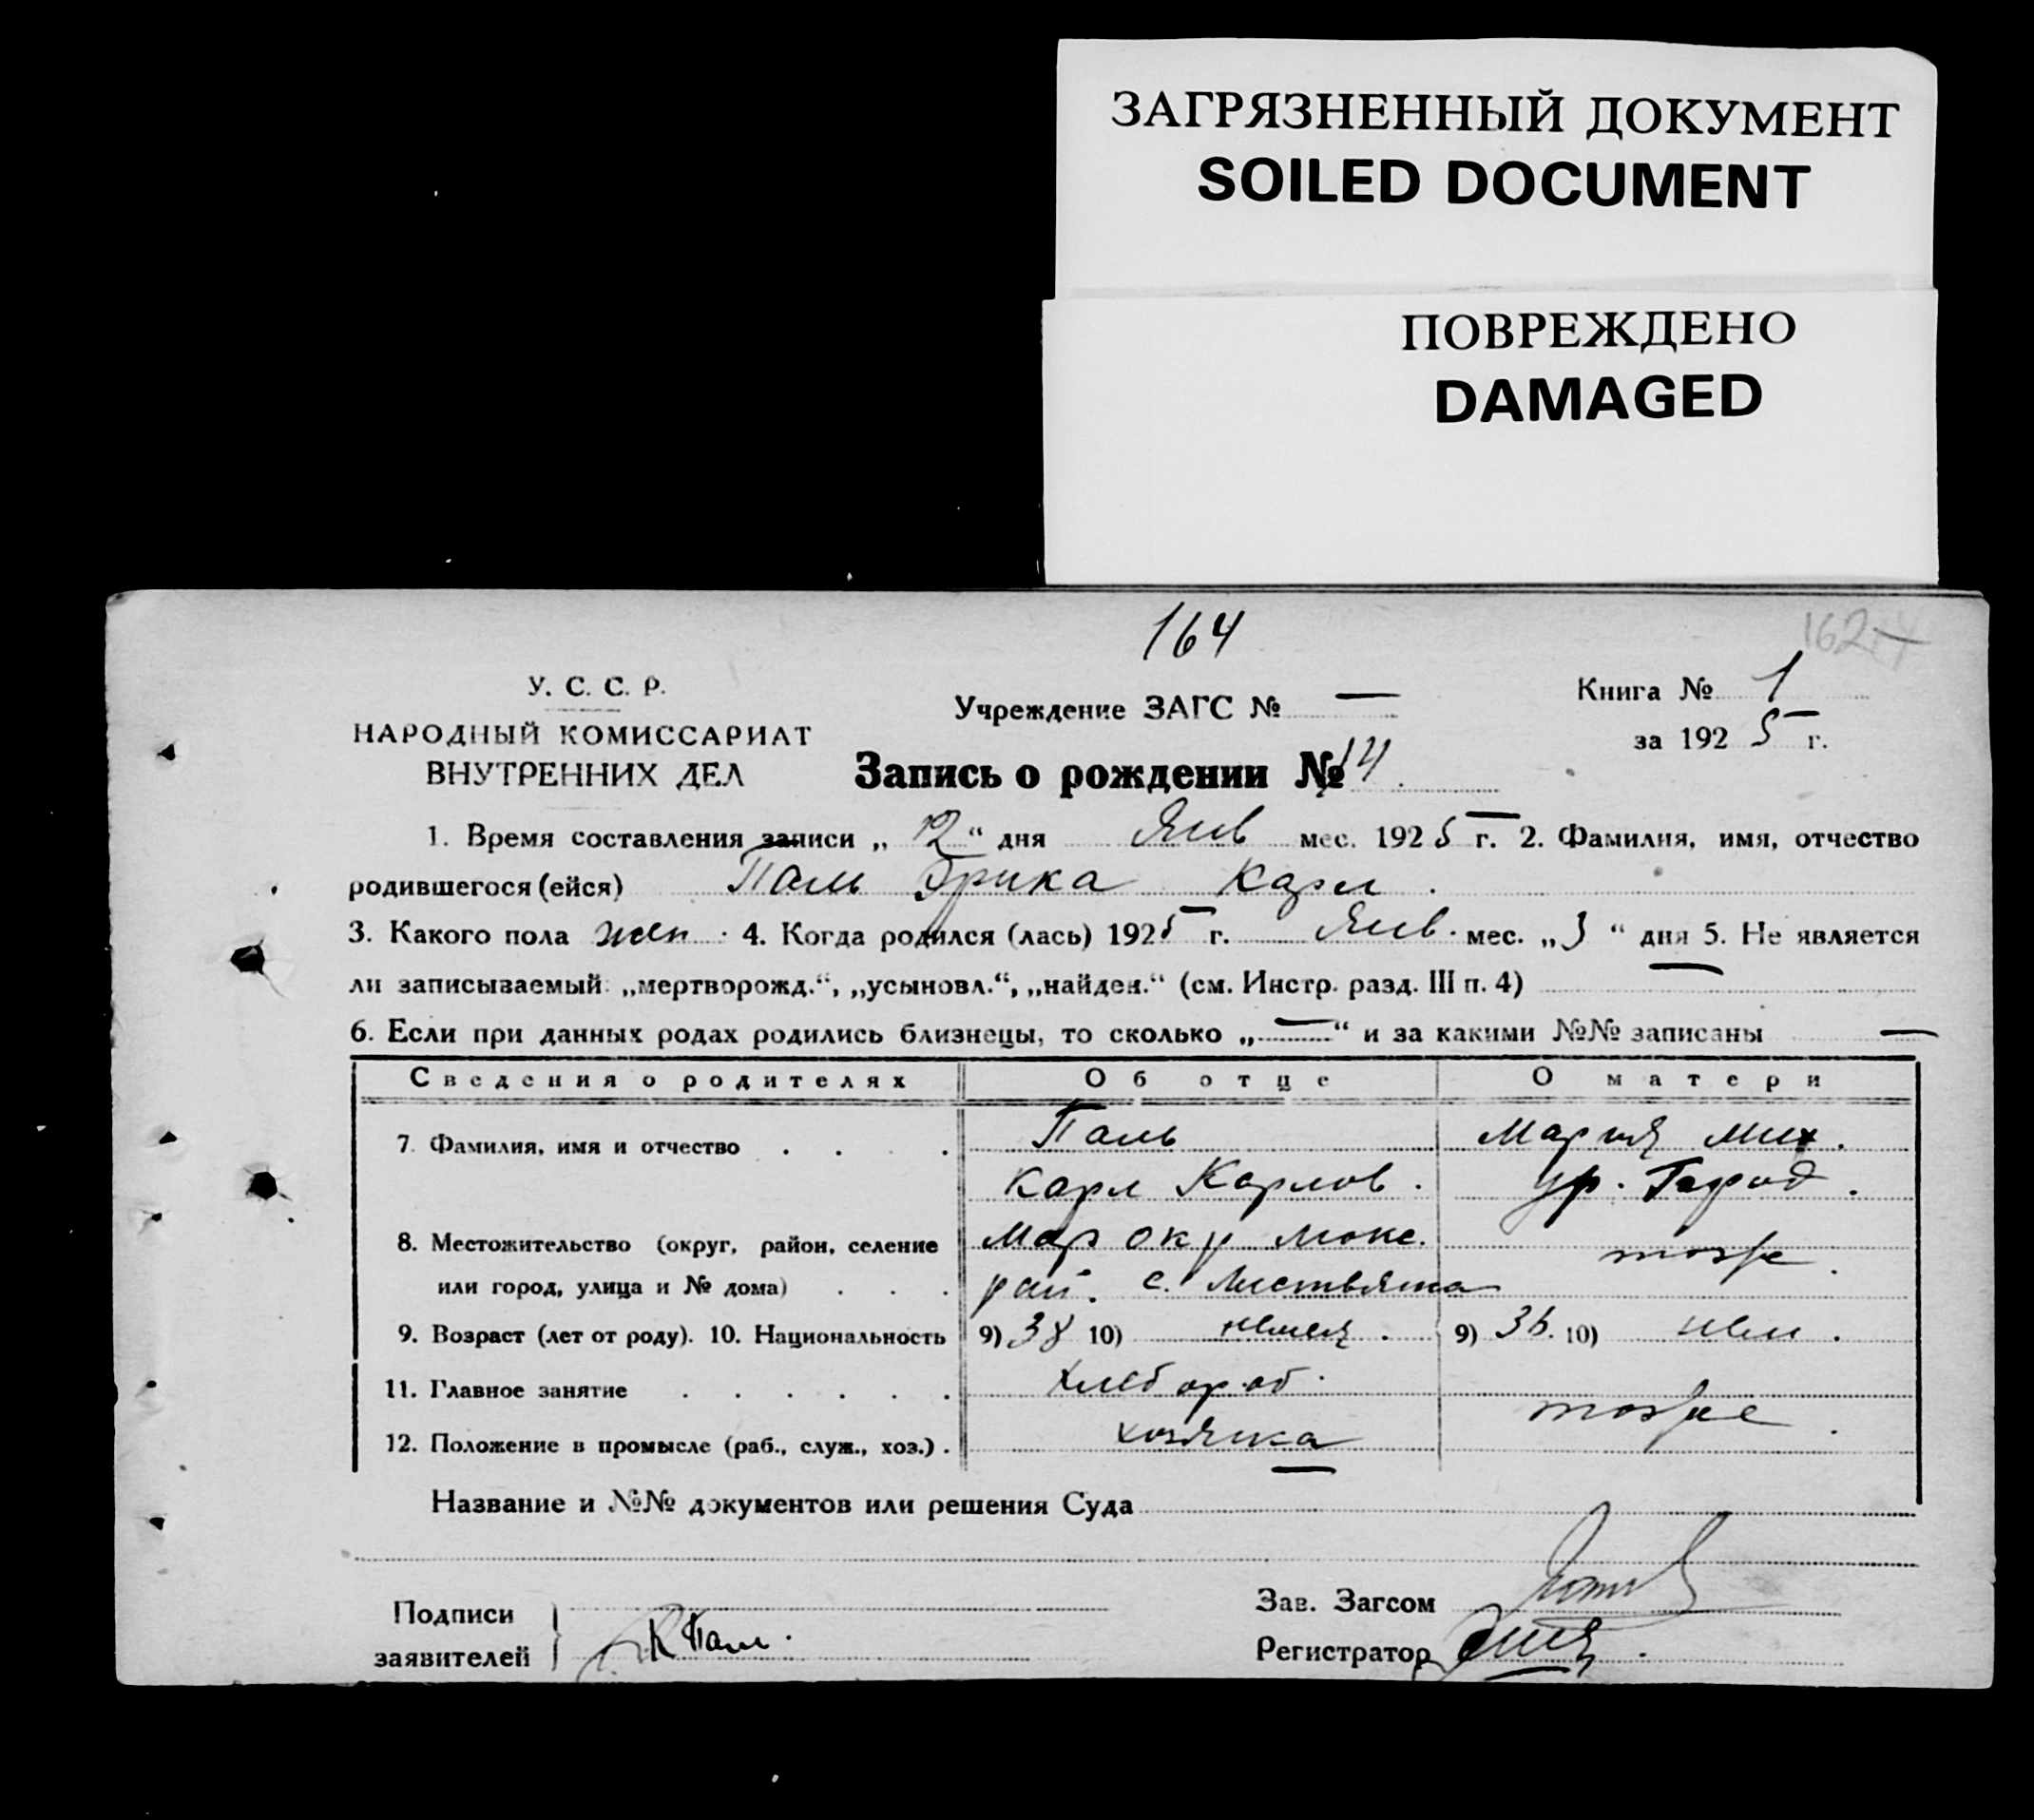 ЗАГРЯЗНЕННЫЙ ДОКУМЕНТ
SOILED DOCUMENT
ПОВРЕЖДЕНО
DAMAGED
164
У. С. С. Р.
НАРОДНЫЙ КОМИССАРИАТ
ВНУТРЕННИХ ДЕЛ
Учреждение ЗАГС № —
Книга № 1
за 1925 г.
Запись о рождении № 14
1. Время составления записи „12“ дня Янв мес. 1925 г. 2. Фамилия, имя, отчество
родившегося (ейся) Паль Эрика Карл.
3. Какого пола жен. 4. Когда родился (лась) 1925 г. Янв. мес. „3“ дня 5. Не является
ли записываемый: „мертворожд.“, „усыновл.“, „найден.“ (см. Инстр. разд. III п. 4) —
6. Если при данных родах родились близнецы, то сколько „—“ и за какими №№ записаны —
Сведения о родителях Об отце О матери
7. Фамилия, имя и отчество . . . . Паль Мария Мих.
Карл Карлов. ур.
8. Местожительство (округ, район, селение Мар окр тоже.
или город, улица и № дома) . . . рай. с.
9. Возраст (лет от роду). 10. Национальность 9) 38 10) немец. 9) 36. 10) нем.
11. Главное занятие . . . . . . Хлебороб. тоже.
12. Положение в промысле (раб., служ., хоз.) . хозяика
Название и №№ документов или решения Суда
Подписи
заявителей К Паль.
Зав. Загсом
Регистратор